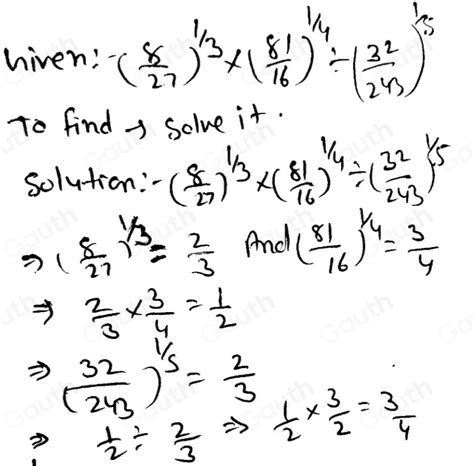 Given:- (8/27)^1/3 × (81/16)^1/4 ÷ (32/243)^1/5
To find → Solve it.
Solution:- (8/27)^1/3 × (81/16)^1/4 ÷ (32/243)^1/5
⇒ (8/27)^1/3 = 2/3 And (81/16)^1/4 = 3/4
⇒ 2/3 × 3/4 = 1/2
⇒ (32/243)^1/5 = 2/3
⇒ 1/2 ÷ 2/3 ⇒ 1/2 × 3/2 = 3/4